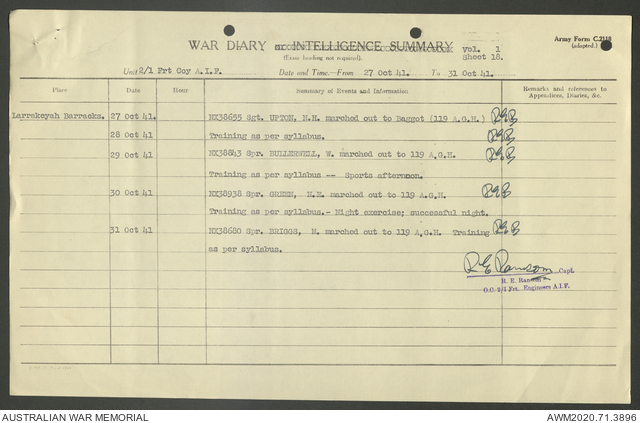 WAR DIARY or INTELLIGENCE SUMMARY Vol. 1
Army Form C.2118
(adapted.)
(Erase heading not required). Sheet 18.
Unit 2/1 Frt Coy A.I.F. Date and Time—From 27 Oct 41. To 31 Oct 41.
Place Date Hour Summary of Events and Information Remarks and references to
Appendices, Diaries, &c.
Larrakeyah Barracks. 27 Oct 41. NX38655 Sgt. UPTON, N.H. marched out to Baggot (119 A.G.H.) REB
28 Oct 41 Training as per syllabus. REB
29 Oct 41 NX38843 Spr. BULLERWELL, W. marched out to 119 A.G.H. REB
Training as per syllabus -- Sports afternoon.
30 Oct 41 NX38938 Spr. GREEN, N.E. marched out to 119 A.G.H. REB
Training as per syllabus.- Night exercise; successful night.
31 Oct 41 NX38680 Spr. BRIGGS, N. marched out to 119 A.G.H. Training REB
as per syllabus.
R E Ransom Capt.
R. E. Ransom
O.C. 2/1 Frt. Engineers A.I.F.
AUSTRALIAN WAR MEMORIAL AWM2020.71.3896